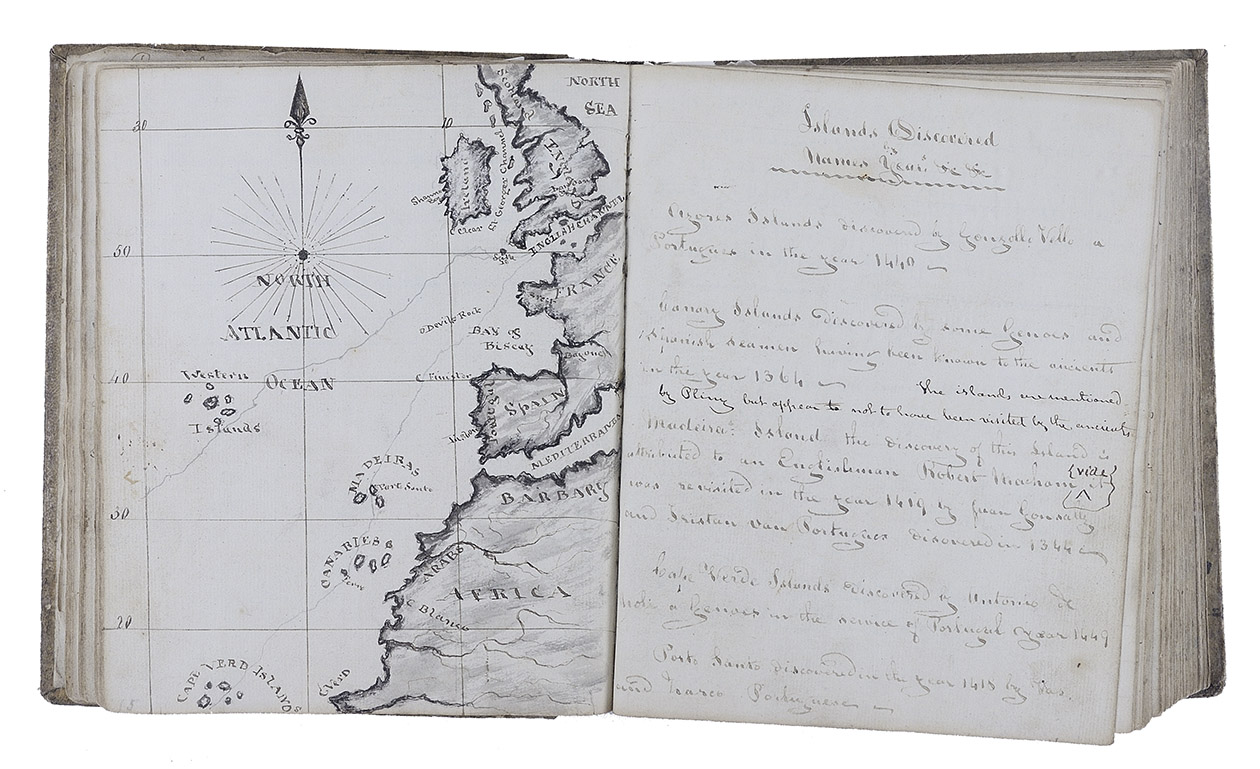 NORTH
SEA
30
10
Ireland
St Georges Channel
C Clear
ENGLISH CHANNEL
50
NORTH
FRANCE
ATLANTIC
Devils Rock
BAY of
Biscay
Bayonne
OCEAN
40
C Finister
Western
Islands
SPAIN
Portugal
MEDITERRANEAN
MADEIRAS
Port Santo
BARBARY
30
CANARIES
Ferro
ARABS
AFRICA
C Blanco
20
CAPE VERD ISLANDS
C Verd
Islands Discovered
Names Year &c &c
Azores Islands discovered by Gonzollo Vello a
Portugues in the year 1448
Canary Islands Discovered by some Genoes and
Spanish seamen having been known to the ancients
in the year 1364
The islands are mentioned
by Pliny but appear to not to have been visited by the ancients
Madeira Island the discovery of this Island is
attributed to an Englishman Robert Macham it
{vide}
was revisited in the year 1419 by Juan Gonsalls
and Tristan van Portugues discovered in 1344
Cape Verde Islands discovered by Antonio de
noli a Genoes in the service of Portugal year 1449
Porto Santo discovered in the year 1418 by Vas
and Zarco Portuguese